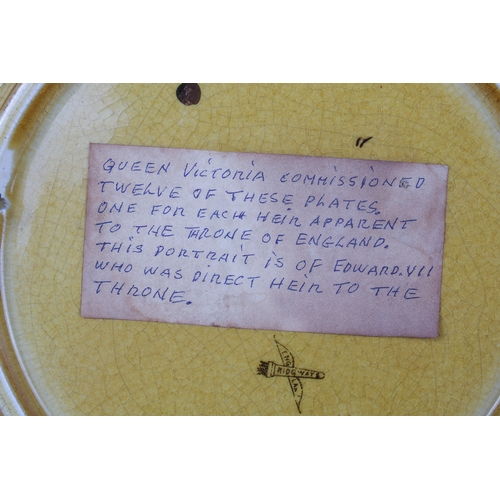 QUEEN VICTORIA COMMISSIONED
TWELVE OF THESE PLATES.
ONE FOR EACH HEIR APPARENT
TO THE THRONE OF ENGLAND.
THIS PORTRAIT IS OF EDWARD.VII
WHO WAS DIRECT HEIR TO THE
THRONE.
RIDGWAYS